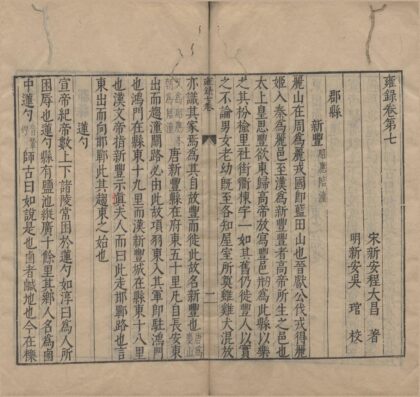 雍錄卷第七
宋新安程大昌著
明新安吳琯校
郡縣
新豐
麗山在周為麗戎國即藍田山也晉獻公伐戎得麗
姬入秦為麗邑至漢為新豐豐者高帝所生之邑也
太上皇思豐欲東歸高帝放寫豐邑剏為此縣以樂
之其枌榆里社街衢棟宇一如其舊仍徙豐人以實
之不論男女老幼既至各知屋室所奠雞雞犬混放
雍錄卷七
一
亦識其家焉為其自故豐而徙此故名新豐也
唐新豐縣在府東五十里凡自長安東
出而趨潼關路必由此故項羽東入其軍即駐鴻門
也鴻門在縣東十九里而漢新豐城在縣東十八里
也漢文帝指新豐示慎夫人而曰此走邯鄲路也言
東出而向邯鄲此其趨東之始也
蓮勺
宣帝紀帝數上下諸陵常困於蓮勺如淳曰為人所
困辱也蓮勺縣有鹽池縱廣十餘里其鄉人名為鹵
中蓮勺師古曰如說是也鹵者鹹地也今在櫟